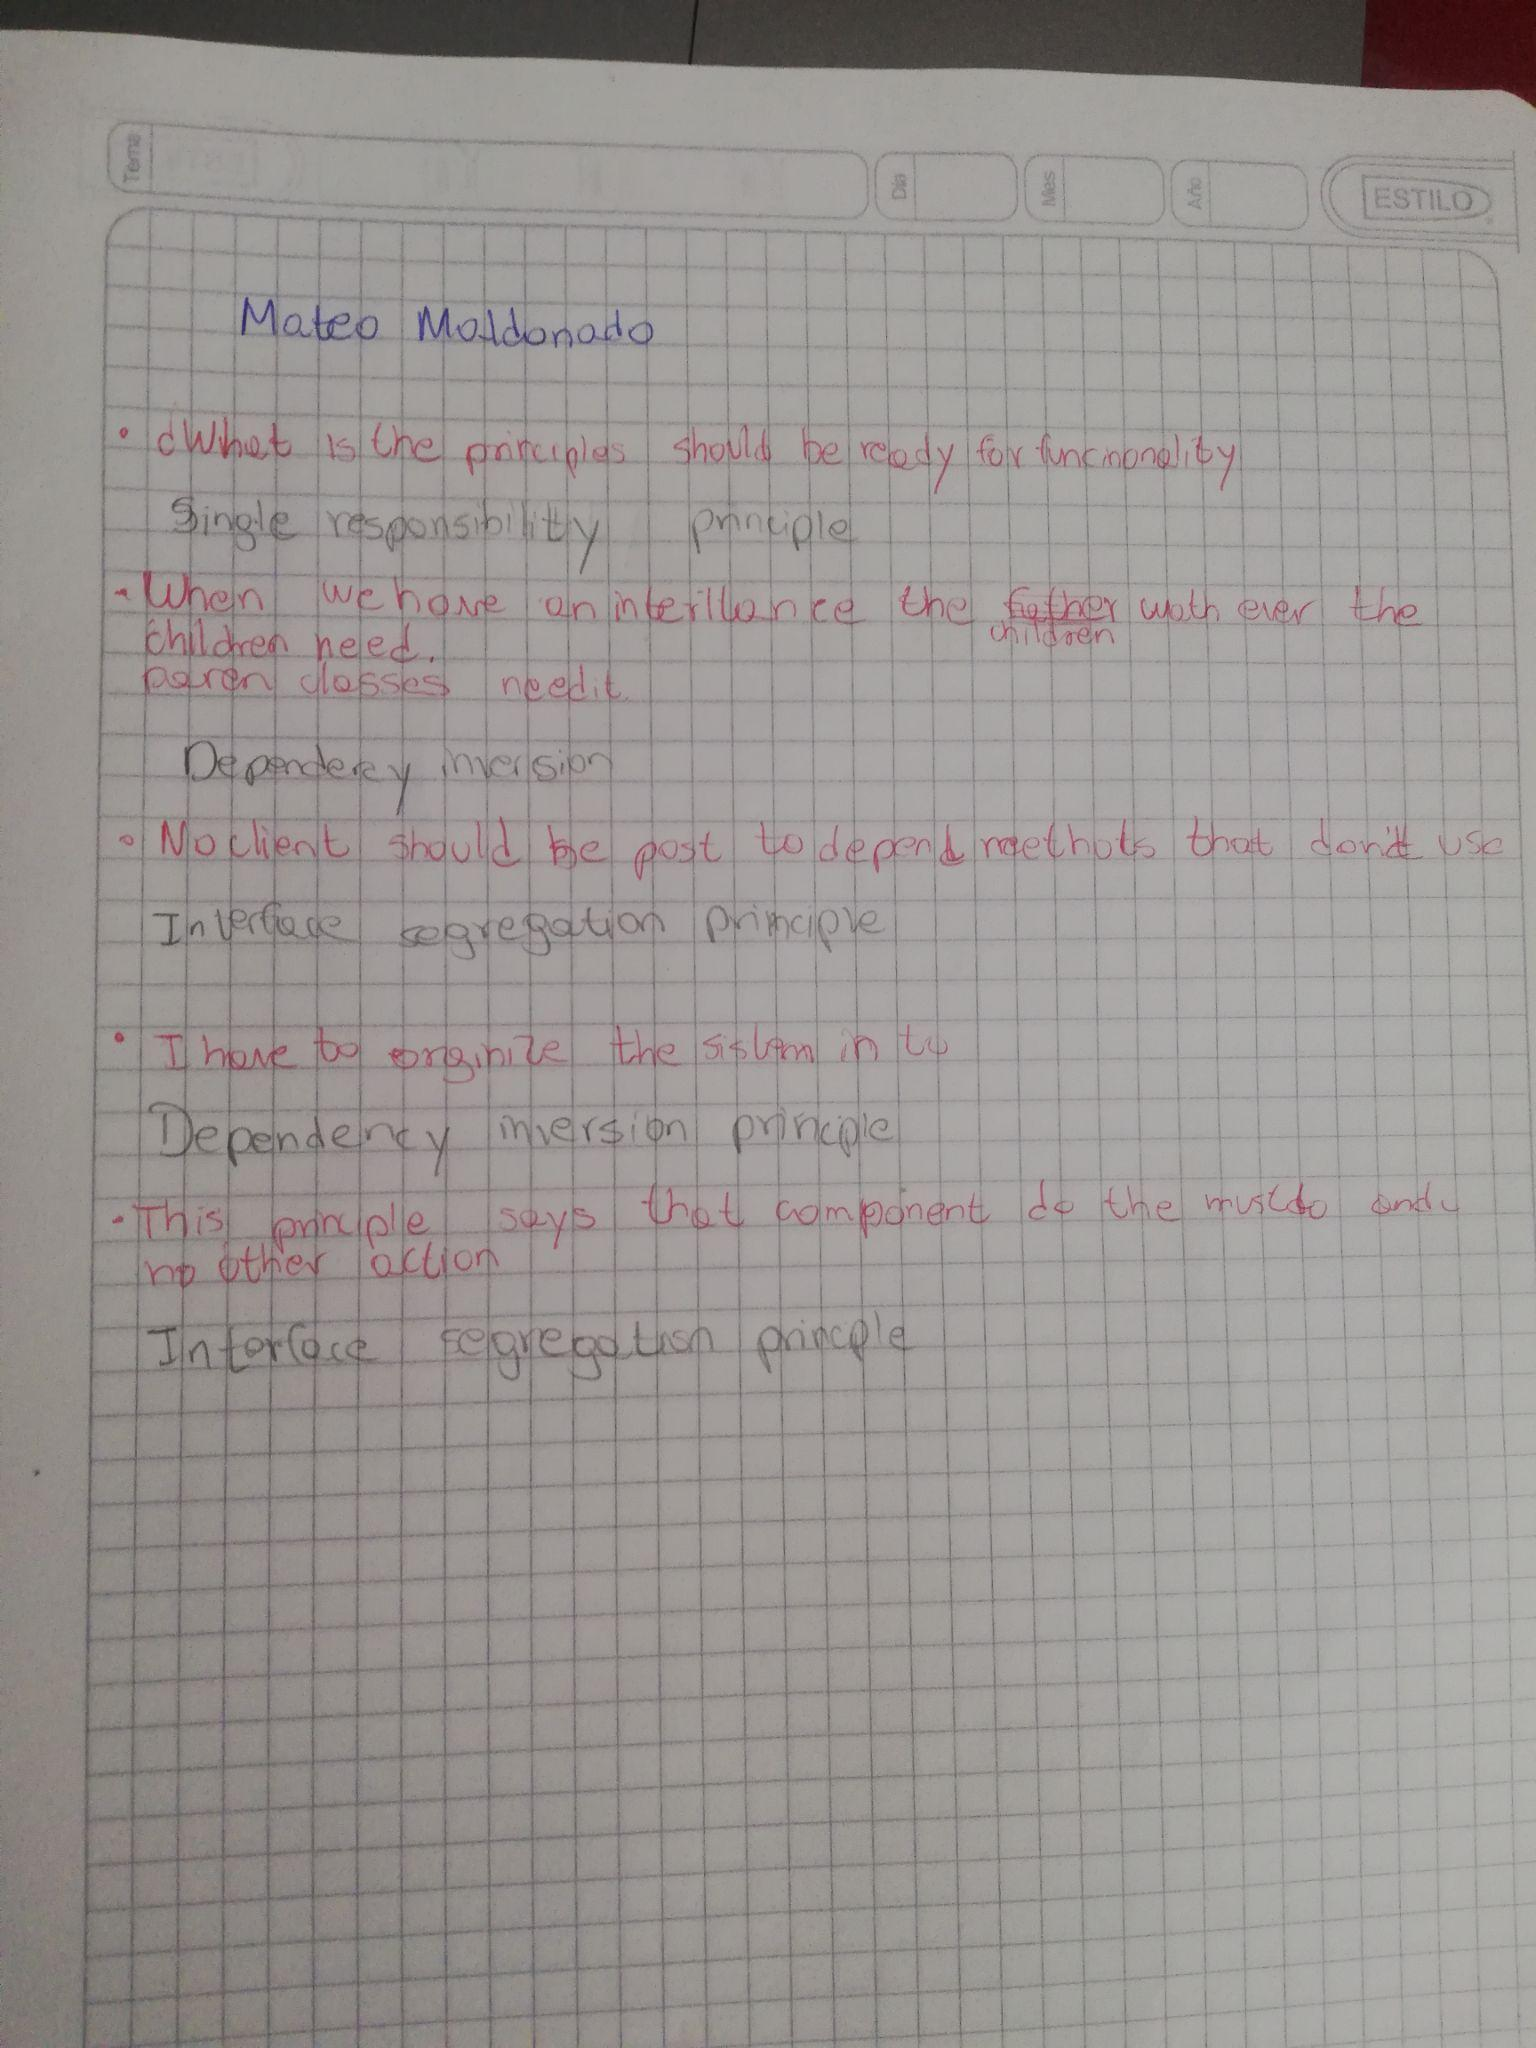 Tema Día Mes Año ESTILO
Mateo Maldonado
• ¿What is the principles should be ready for funcnonality
Single responsibilitly principle
- When we have an interillance the father woth ever the
children
children need.
paren classes need it.
Dependecy inversion
• No client should be post to depend methots that don't use
Interface segregation principle
• I have to orginize the sistem in to
Dependency inversion principle
- This principle says that component do the must do and
no other action
Interface segregation princple